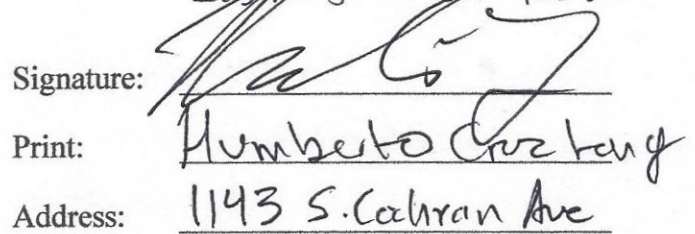 Signature:
Print: Humberto Cruz
Address: 1143 S. Cochran Ave